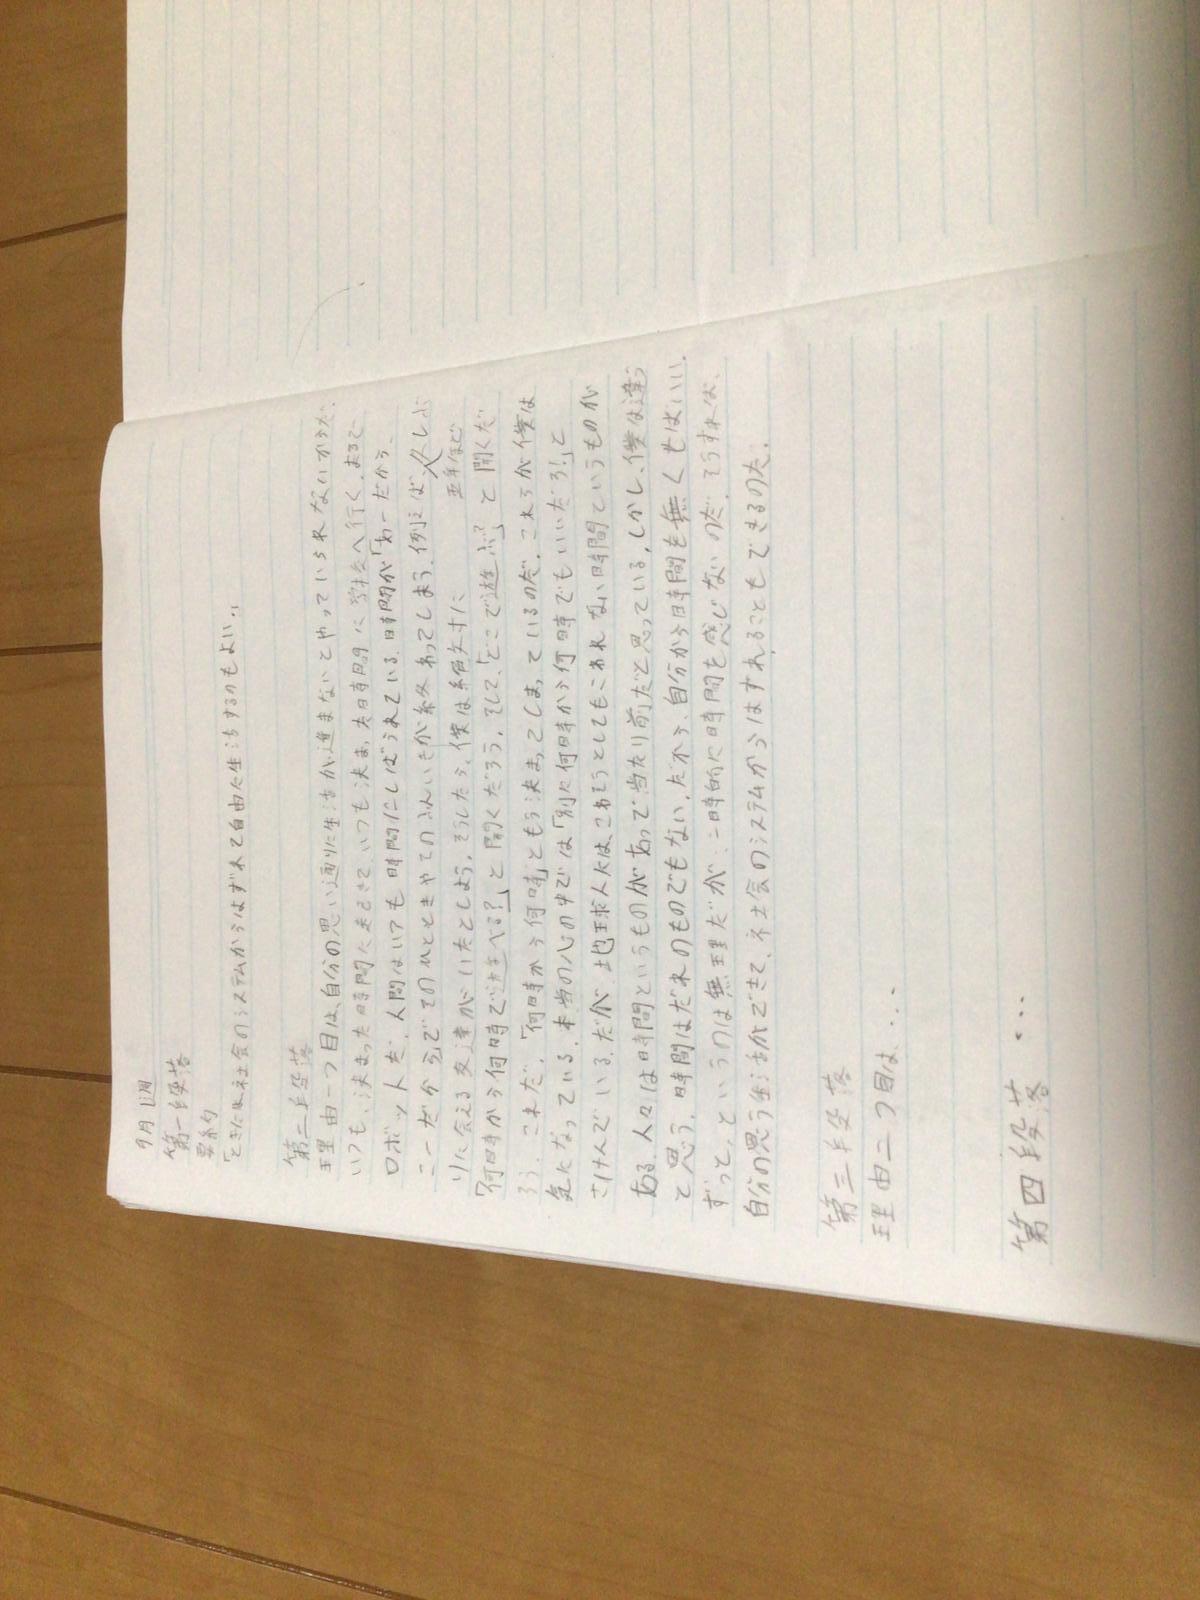 9月1週
第一段落
要約
「ときには社会のシステムからはずれて自由に生活するのもよい。」
第二段落
理由一つ目は、自分の思い通りに生活が進まないとやっていられないからだ。
いつも、決まった時間に起きて、いつも決まった時間に学校へ行く。まるで
ロボットだ。人間はいつも時間にしばられている。時間が「あーだから、
こーだから」でそのひとときやそのふんいきが終わってしまう。例えば、久しぶ
五年ほど
りに会える友達がいたとしよう。そうしたら、僕は絶対に
「何時から何時まで遊べる?」と聞くだろう。そして、「どこで遊ぶ?」と聞くだ
ろう。これだ。「何時から何時」ともう決まってしまっているのだ。これらが僕は
気になっている。本当の心の中では「別に何時から何時でもいいだろ!」と
さけんでいる。だが、地球人には、こわそうとしてもこわれない時間というものが
ある。人々は時間というものがあって当たり前だと思っている。しかし、僕は違う
と思う。時間はだれのものでもない。だから、自分から時間を無くせばいい。
ずっと、というのは無理だが、一時的に時間を感じないのだ。そうすれば、
自分の思う生活ができて、社会のシステムからはずれることもできるのだ。
第三段落
理由二つ目は、…
第四段落 …